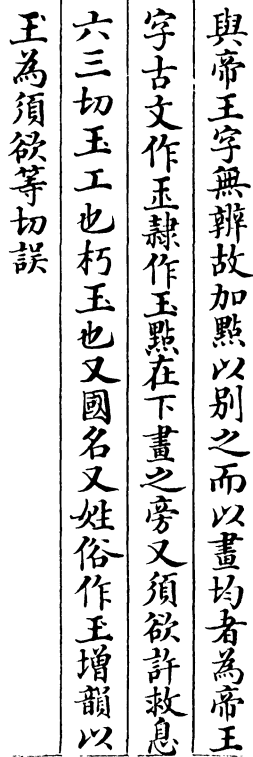 與帝王字無辨故加點以別之而以畫均者為帝王
字古文作𤣪隷作玉點在下畫之旁又須欲許救息
六三切玉工也朽玉也又國名又姓俗作玉增韻以
玉為須欲等切誤